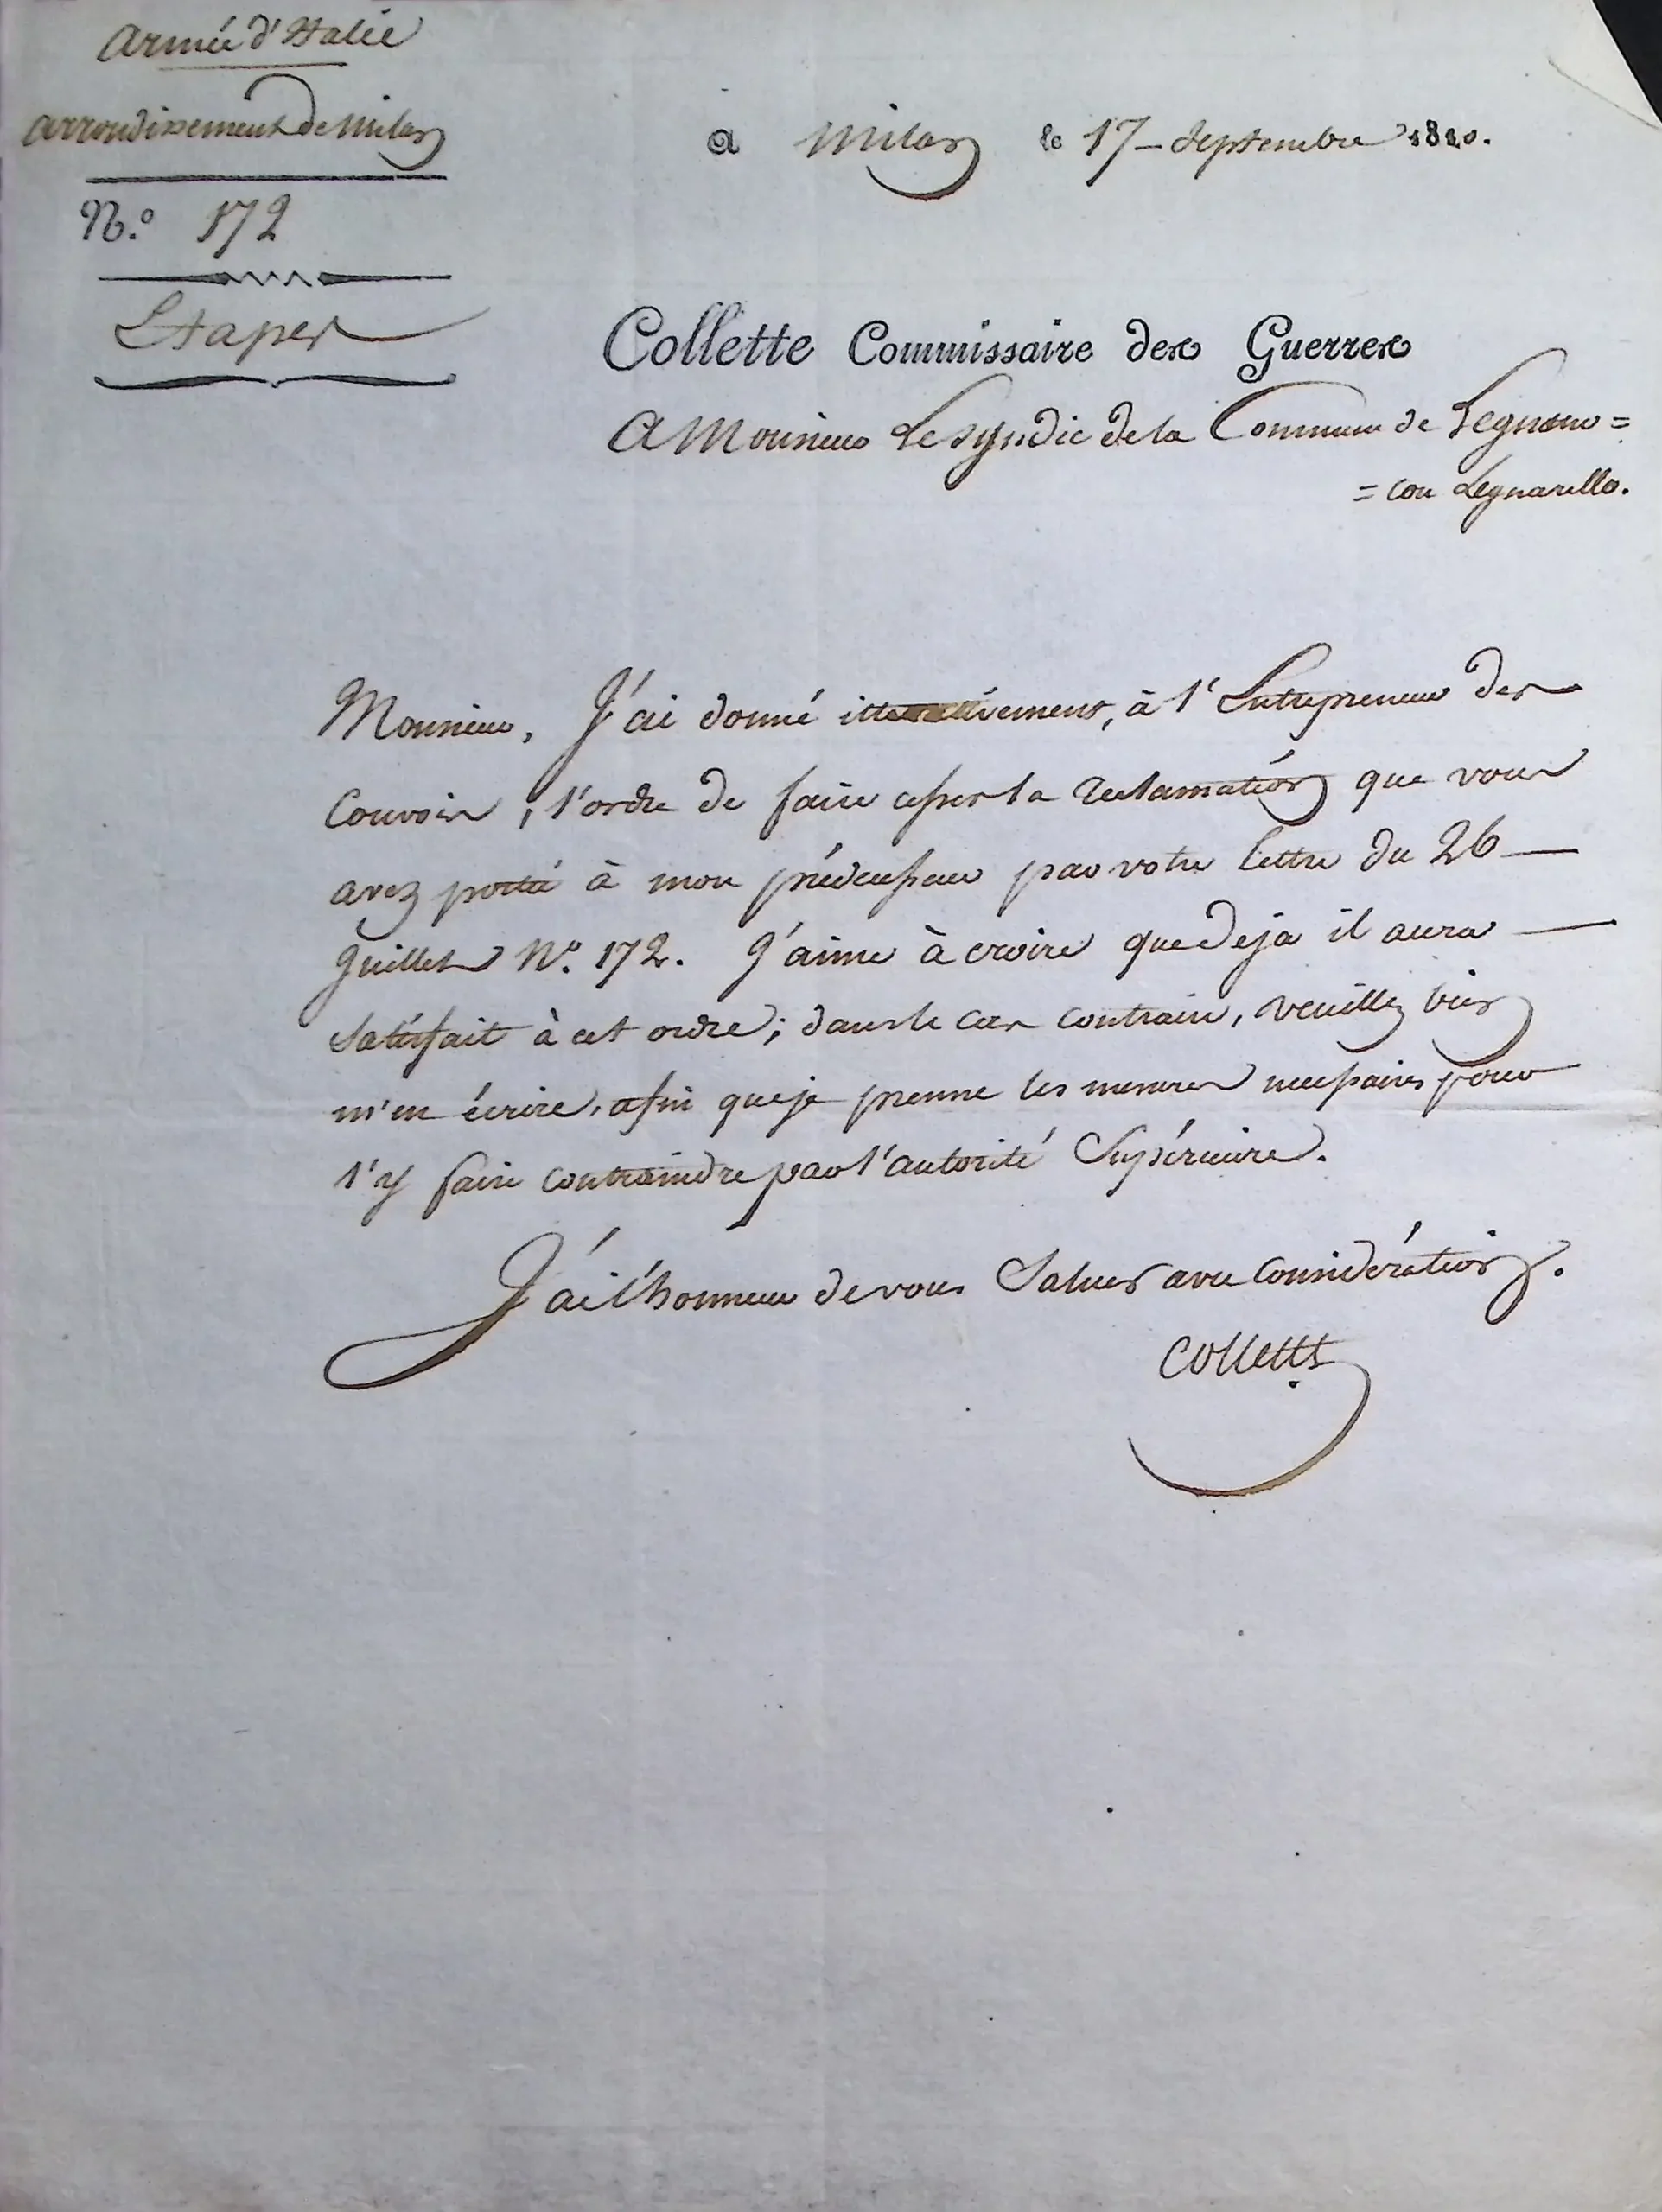 Armée d'Italie
arrondissement de Milan
N.° 172
Etapes
a Milan le 17 - Septembre 1810.
Collette Commissaire des Guerres
A Monsieur Le Syndic de la Commune de Legnano =
= con Legnarello.
Monsieur, J'ai donné itterativement, à l'Entrepreneur des
Convois, l'ordre de faire cesser la reclamation que vous
avez porté à mon prédécesseur par votre lettre du 26
Juillet N.° 172. J'aime à croire que deja il aura
satisfait à cet ordre; dans le cas contraire, veuillez bien
m'en écrire, afin que je prenne les mesures necessaires pour
l'y faire contraindre par l'autorité Supérieure.
J'ai l'honneur de vous Saluer avec Considération.
Collette